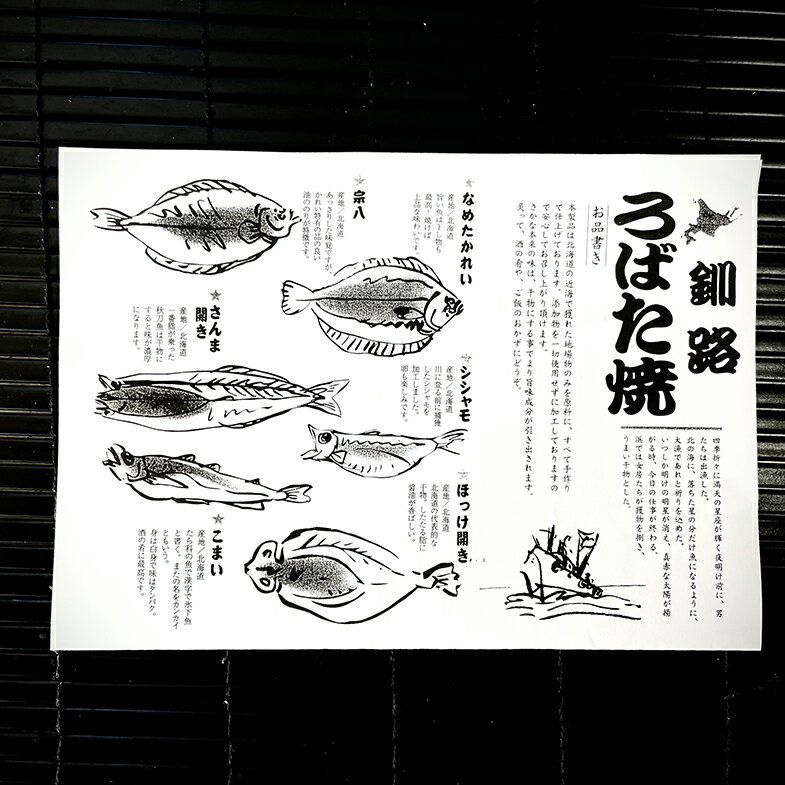 釧路
ろばた焼
四季折々に満天の星座が輝く夜明け前に、男
たちは出漁した。
北の海に、落ちた星の分だけ魚になるように、
大漁であれと祈りを込めた。
いつしか明けの明星が消え、真赤な太陽が揚
がる時、今日の仕事が終わる。
浜では女房たちが獲物を捌き、
うまい干物とした。
お品書き
本製品は北海道の近海で獲れた地場物のみを原料に、すべて手作り
で仕上げております。添加物を一切使用せずに加工しておりますの
で安心してお召し上がり頂けます。
さかな本来の味は、干物にする事でより旨味成分が引き出されます。
炙って、酒の肴や、ご飯のおかずにどうぞ。
なめたかれい
産地/北海道
旨い魚は干し物も
最高!焼けば
上品な味わいです。
シシャモ
産地/北海道
川に登る前に捕獲
したシシャモを
加工しました。
卵も楽しみです。
ほっけ開き
産地/北海道
北海道の代表的な
干物。したたる脂に
醤油が香ばしい。
宗八
産地/北海道
あっさりした味覚ですが、
かれい特有の品の良い
油ののりが特徴です。
さんま
開き
産地/北海道
一番脂が乗った
秋刀魚は干物に
すると味が濃厚
になります。
こまい
産地/北海道
たら科の魚で漢字で氷下魚
と書く。またの名をカンカイ
ともいう。
身は白身で味はタンパク。
酒の肴に最高です。